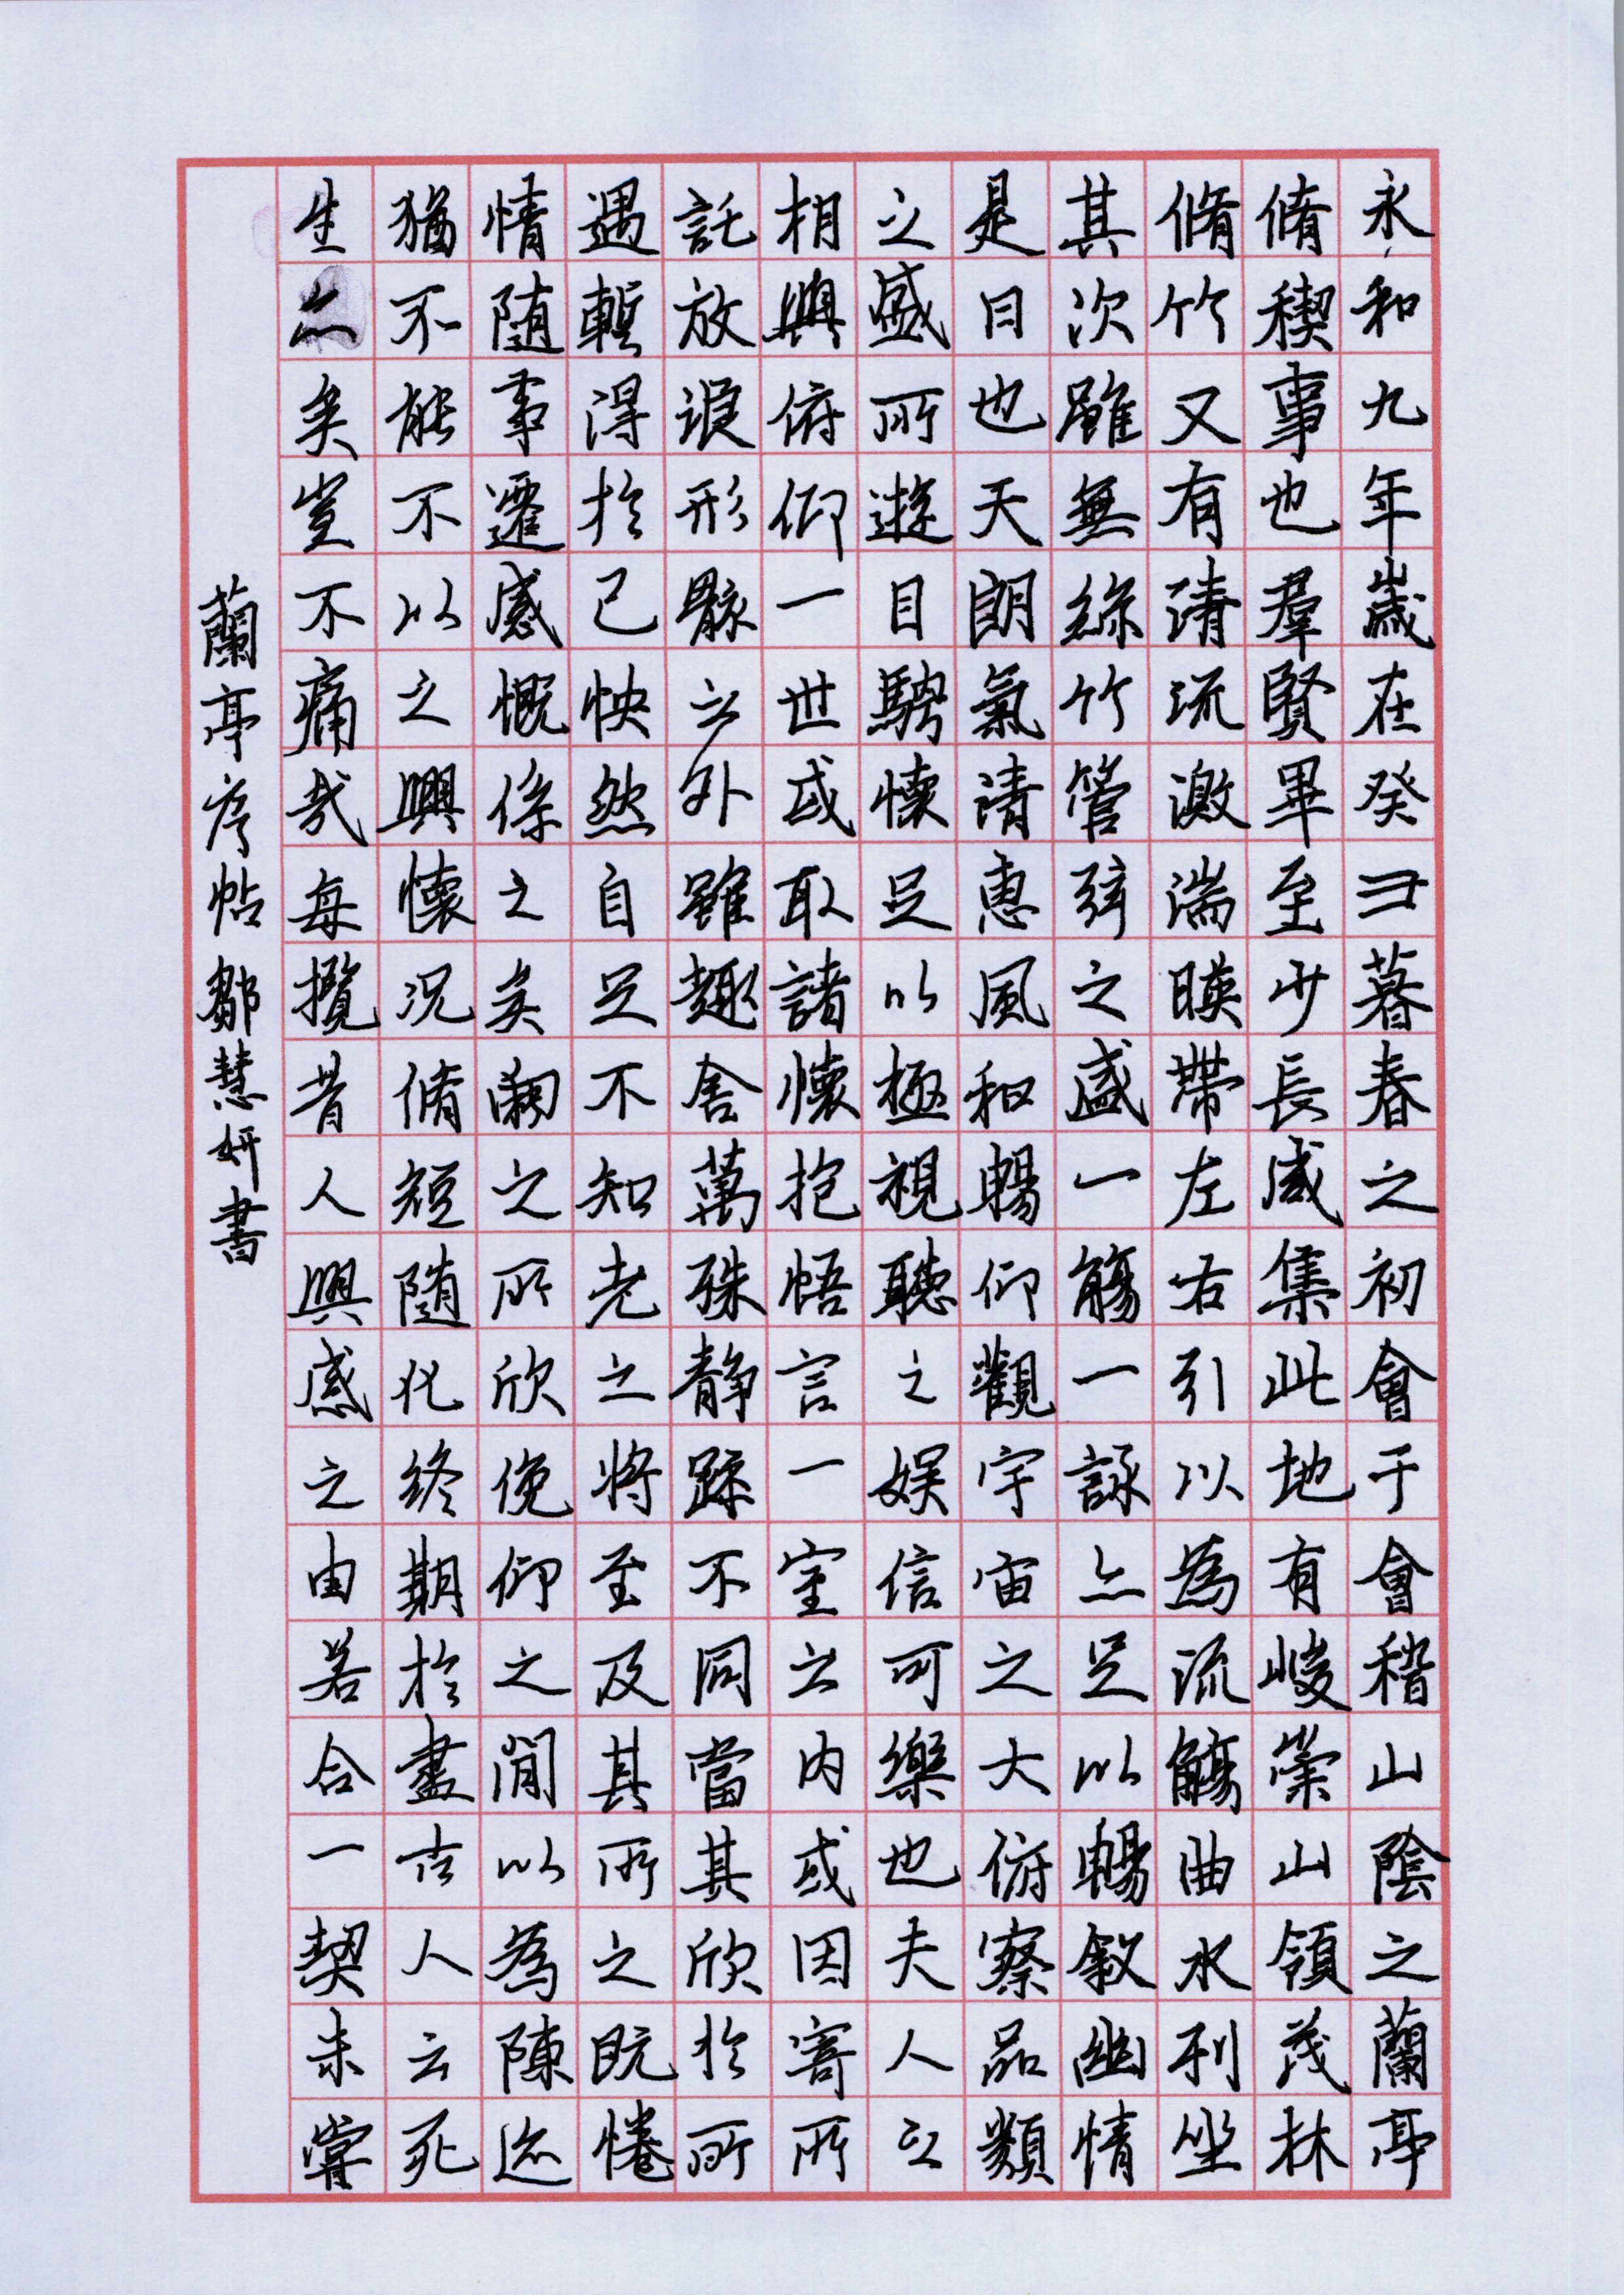 永和九年歲在癸丑暮春之初會于會稽山陰之蘭亭
脩稧事也羣賢畢至少長咸集此地有峻崇山領茂林
脩竹又有清流激湍暎帶左右引以為流觴曲水列坐
其次雖無絲竹管弦之盛一觴一詠亦足以暢敘幽情
是日也天朗氣清惠風和暢仰觀宇宙之大俯察品類
之盛所遊目騁懷足以極視聽之娛信可樂也夫人之
相與俯仰一世或取諸懷抱悟言一室之內或因寄所
託放浪形骸之外雖趣舍萬殊靜躁不同當其欣於所
遇暫得於己怏然自足不知老之將至及其所之既惓
情随事遷感慨係之矣嚮之所欣俛仰之閒以為陳迹
猶不能不以之興懷況脩短随化終期於盡古人云死
生亦矣豈不痛哉每攬昔人興感之由若合一契未嘗
蘭亭序帖鄒慧妍書